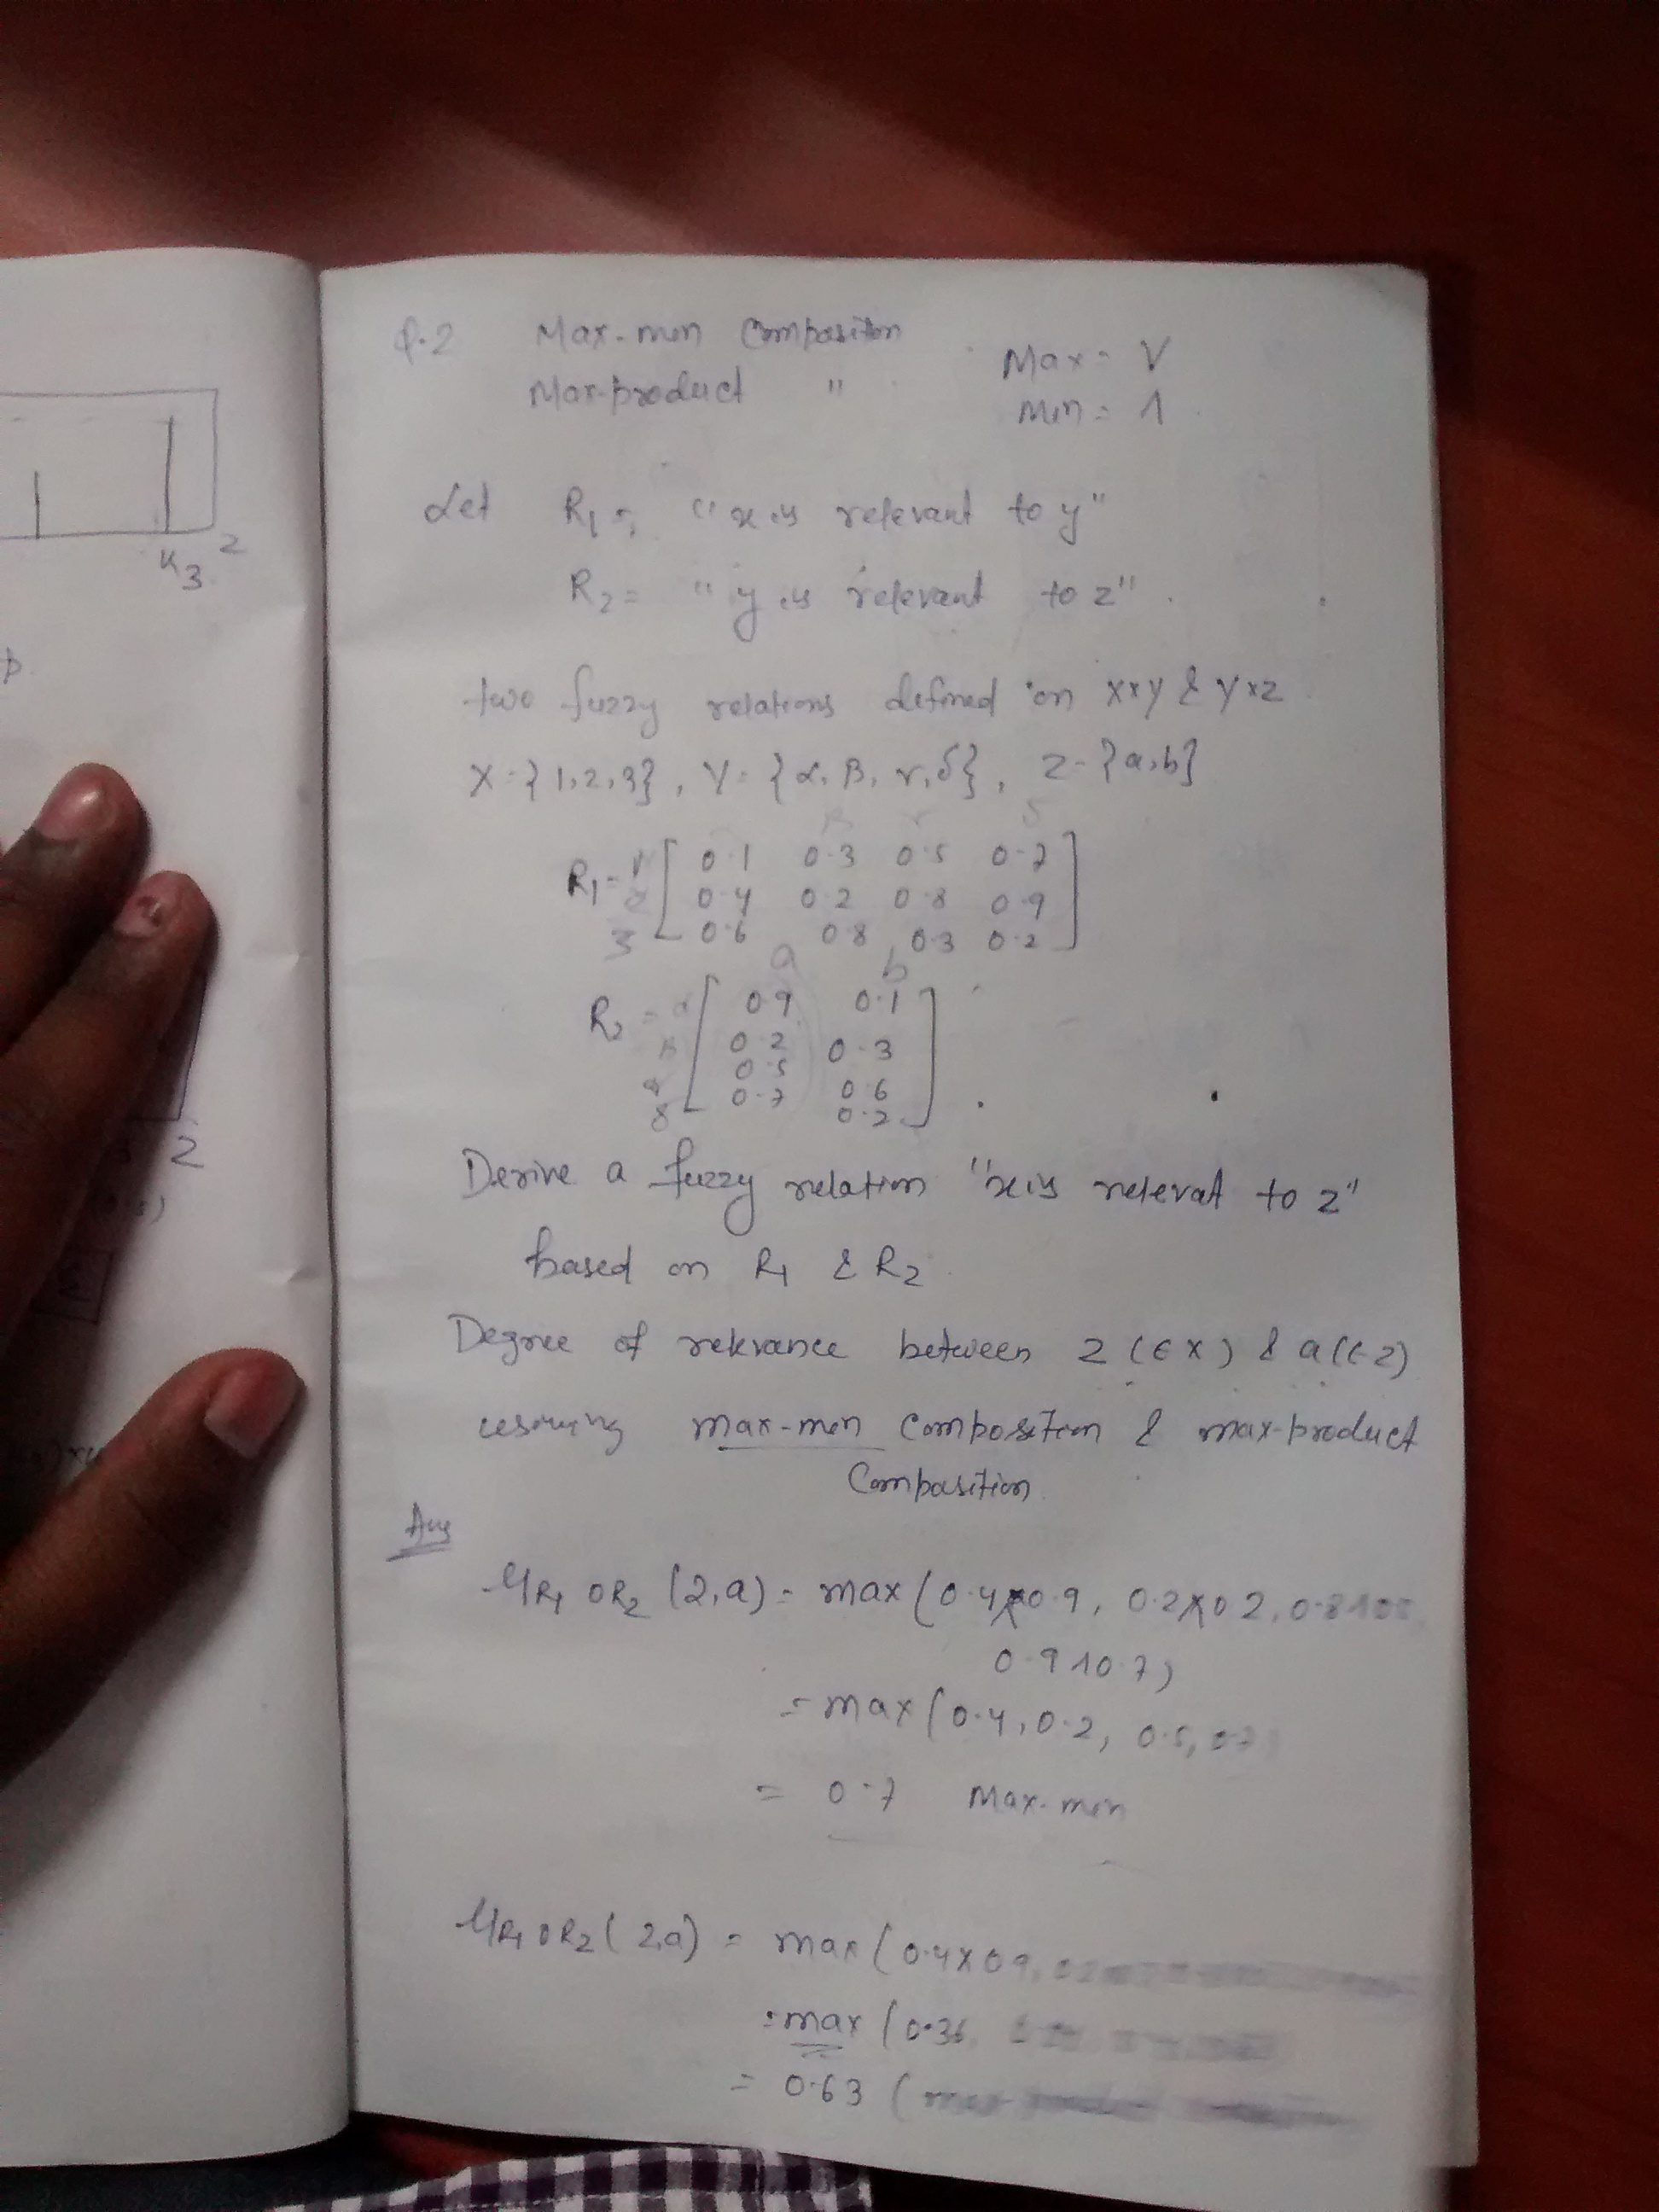 Q.2 Max-min Composition
Max = V
Max-product "
Min = Λ
Let R1 = "x is relevant to y"
R2 = "y is relevant to z".
two fuzzy relations defined on X×Y & Y×Z
X = {1,2,3}, Y = {α, β, γ, δ}, Z = {a,b}
β γ δ
R1 = 1 [ 0.1 0.3 0.5 0.7 ]
2 0.4 0.2 0.8 0.9
3 0.6 0.8 0.3 0.2
a b
R2 = α [ 0.9 0.1 ]
β 0.2 0.3
0.5 0.6
δ 0.7 0.2
Derive a fuzzy relation "x is relevat to z"
based on R1 & R2
Degree of relevance between 2 (∈ X) & a (∈ Z)
max-min composition & max-product
Composition
Ans
μR1 o R2 (2,a) = max (0.4 Λ 0.9, 0.2 Λ 0.2, 0.8 Λ
0.9 Λ 0.7)
= max (0.4, 0.2, 0.5, 0.7
= 0.7 Max-min
μR1 o R2 (2,a) = max (0.4×0.9,
= max (0.36,
= 0.63 (
K3 2
p
2